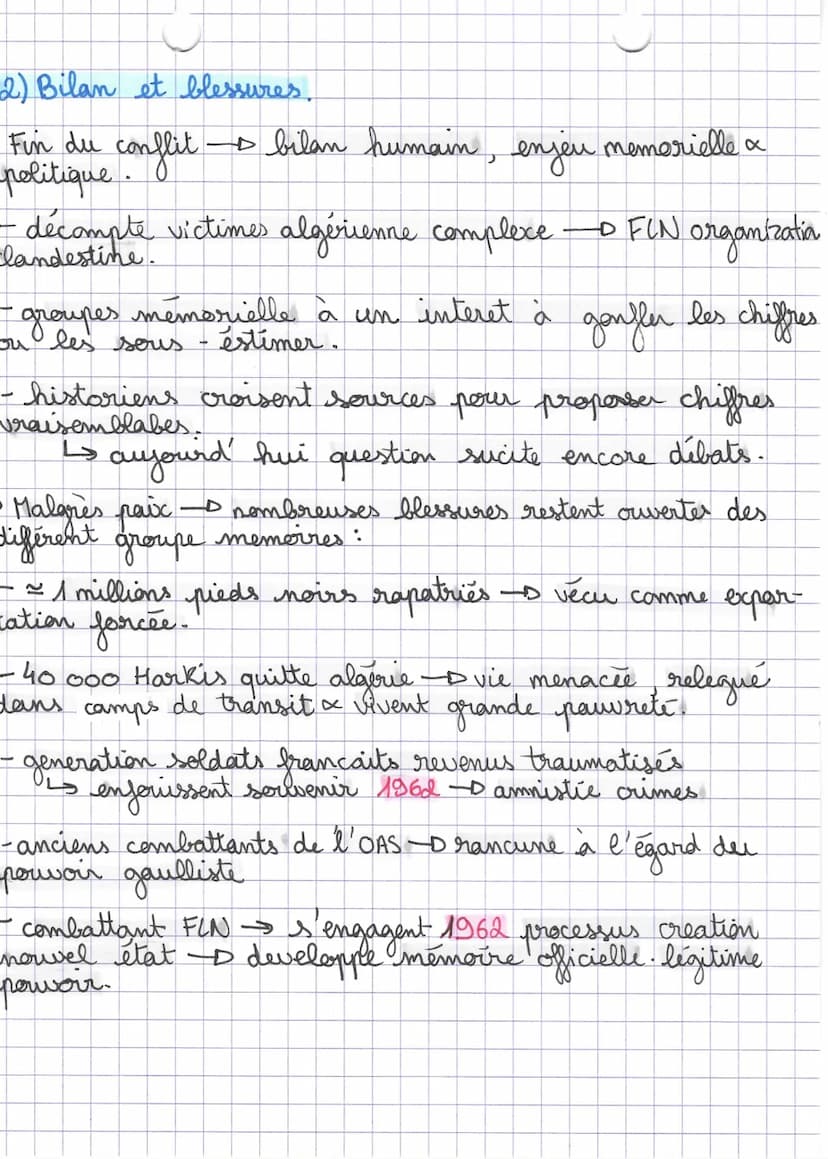 2) Bilan et blessures.
Fin du conflit → bilan humain, enjeu memorielle &
politique.
- décompte victimes algérienne complexe → FLN organizatia
landestine.
- groupes mémorielle à un interet à gonfler les chiffres
ou les sous-éstimer.
- historiens croisent sources pour proposer chiffres
vraisemblabes.
↳ aujourd'hui question sucite encore débats.
Malgrès paix → nombreuses blessures restent ouvertes des
différent groupe memoires :
- ≃ 1 millions pieds noirs rapatriés → vécu comme expor-
tation forcée.
- 40 000 Harkis quitte algérie → vie menacée, relegué
dans camps de transit & vivent grande pauvreté.
- generation soldats francaits revenus traumatisés
↳ enfouissent souvenir 1962 → amnistie crimes
- anciens combattants de l'OAS → rancune à l'égard du
pouvoir gaulliste
- combattant FLN → s'engagent 1962 processus creation
nouvel état → developpe mémoire officielle. légitime
pouvoir.